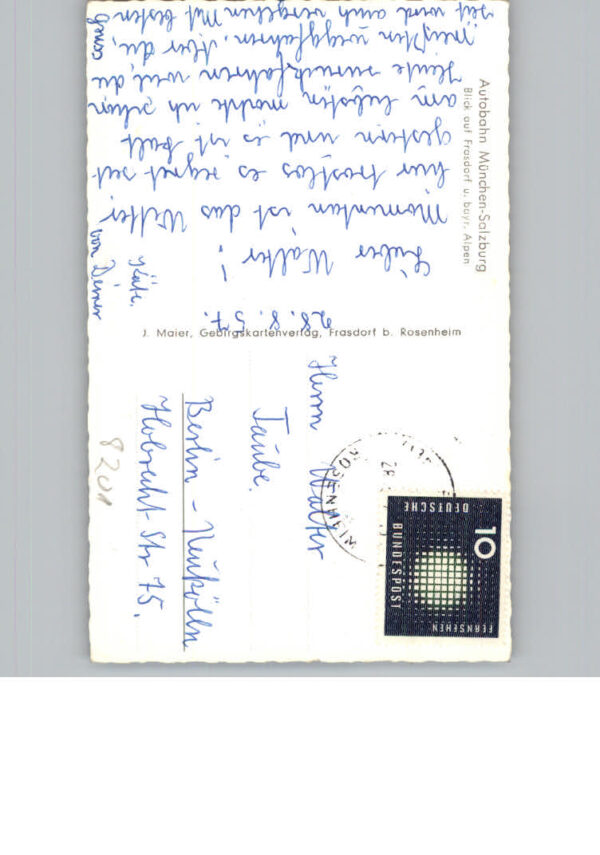 Autobahn München-Salzburg
Blick auf Frasdorf u. bayr. Alpen
28.8.57.
Lieber Walter!
Momentan ist das Wetter
hier trostlos es regnet seit
gestern und es ist kalt
am liebsten möcht ich schon
Heute zurückfahren weil du
müsten wegfahren. Aber die
Zeit wird auch vergehen Mit besten
Gruss
von Deiner
Käte.
J. Maier, Gebirgskartenverlag, Frasdorf b. Rosenheim
Herrn Walter
Taube.
Berlin - Neukölln
Hobrecht-Str 75.
8201
ROSENHEIM
28
10
DEUTSCHE
BUNDESPOST
FERNSEHEN